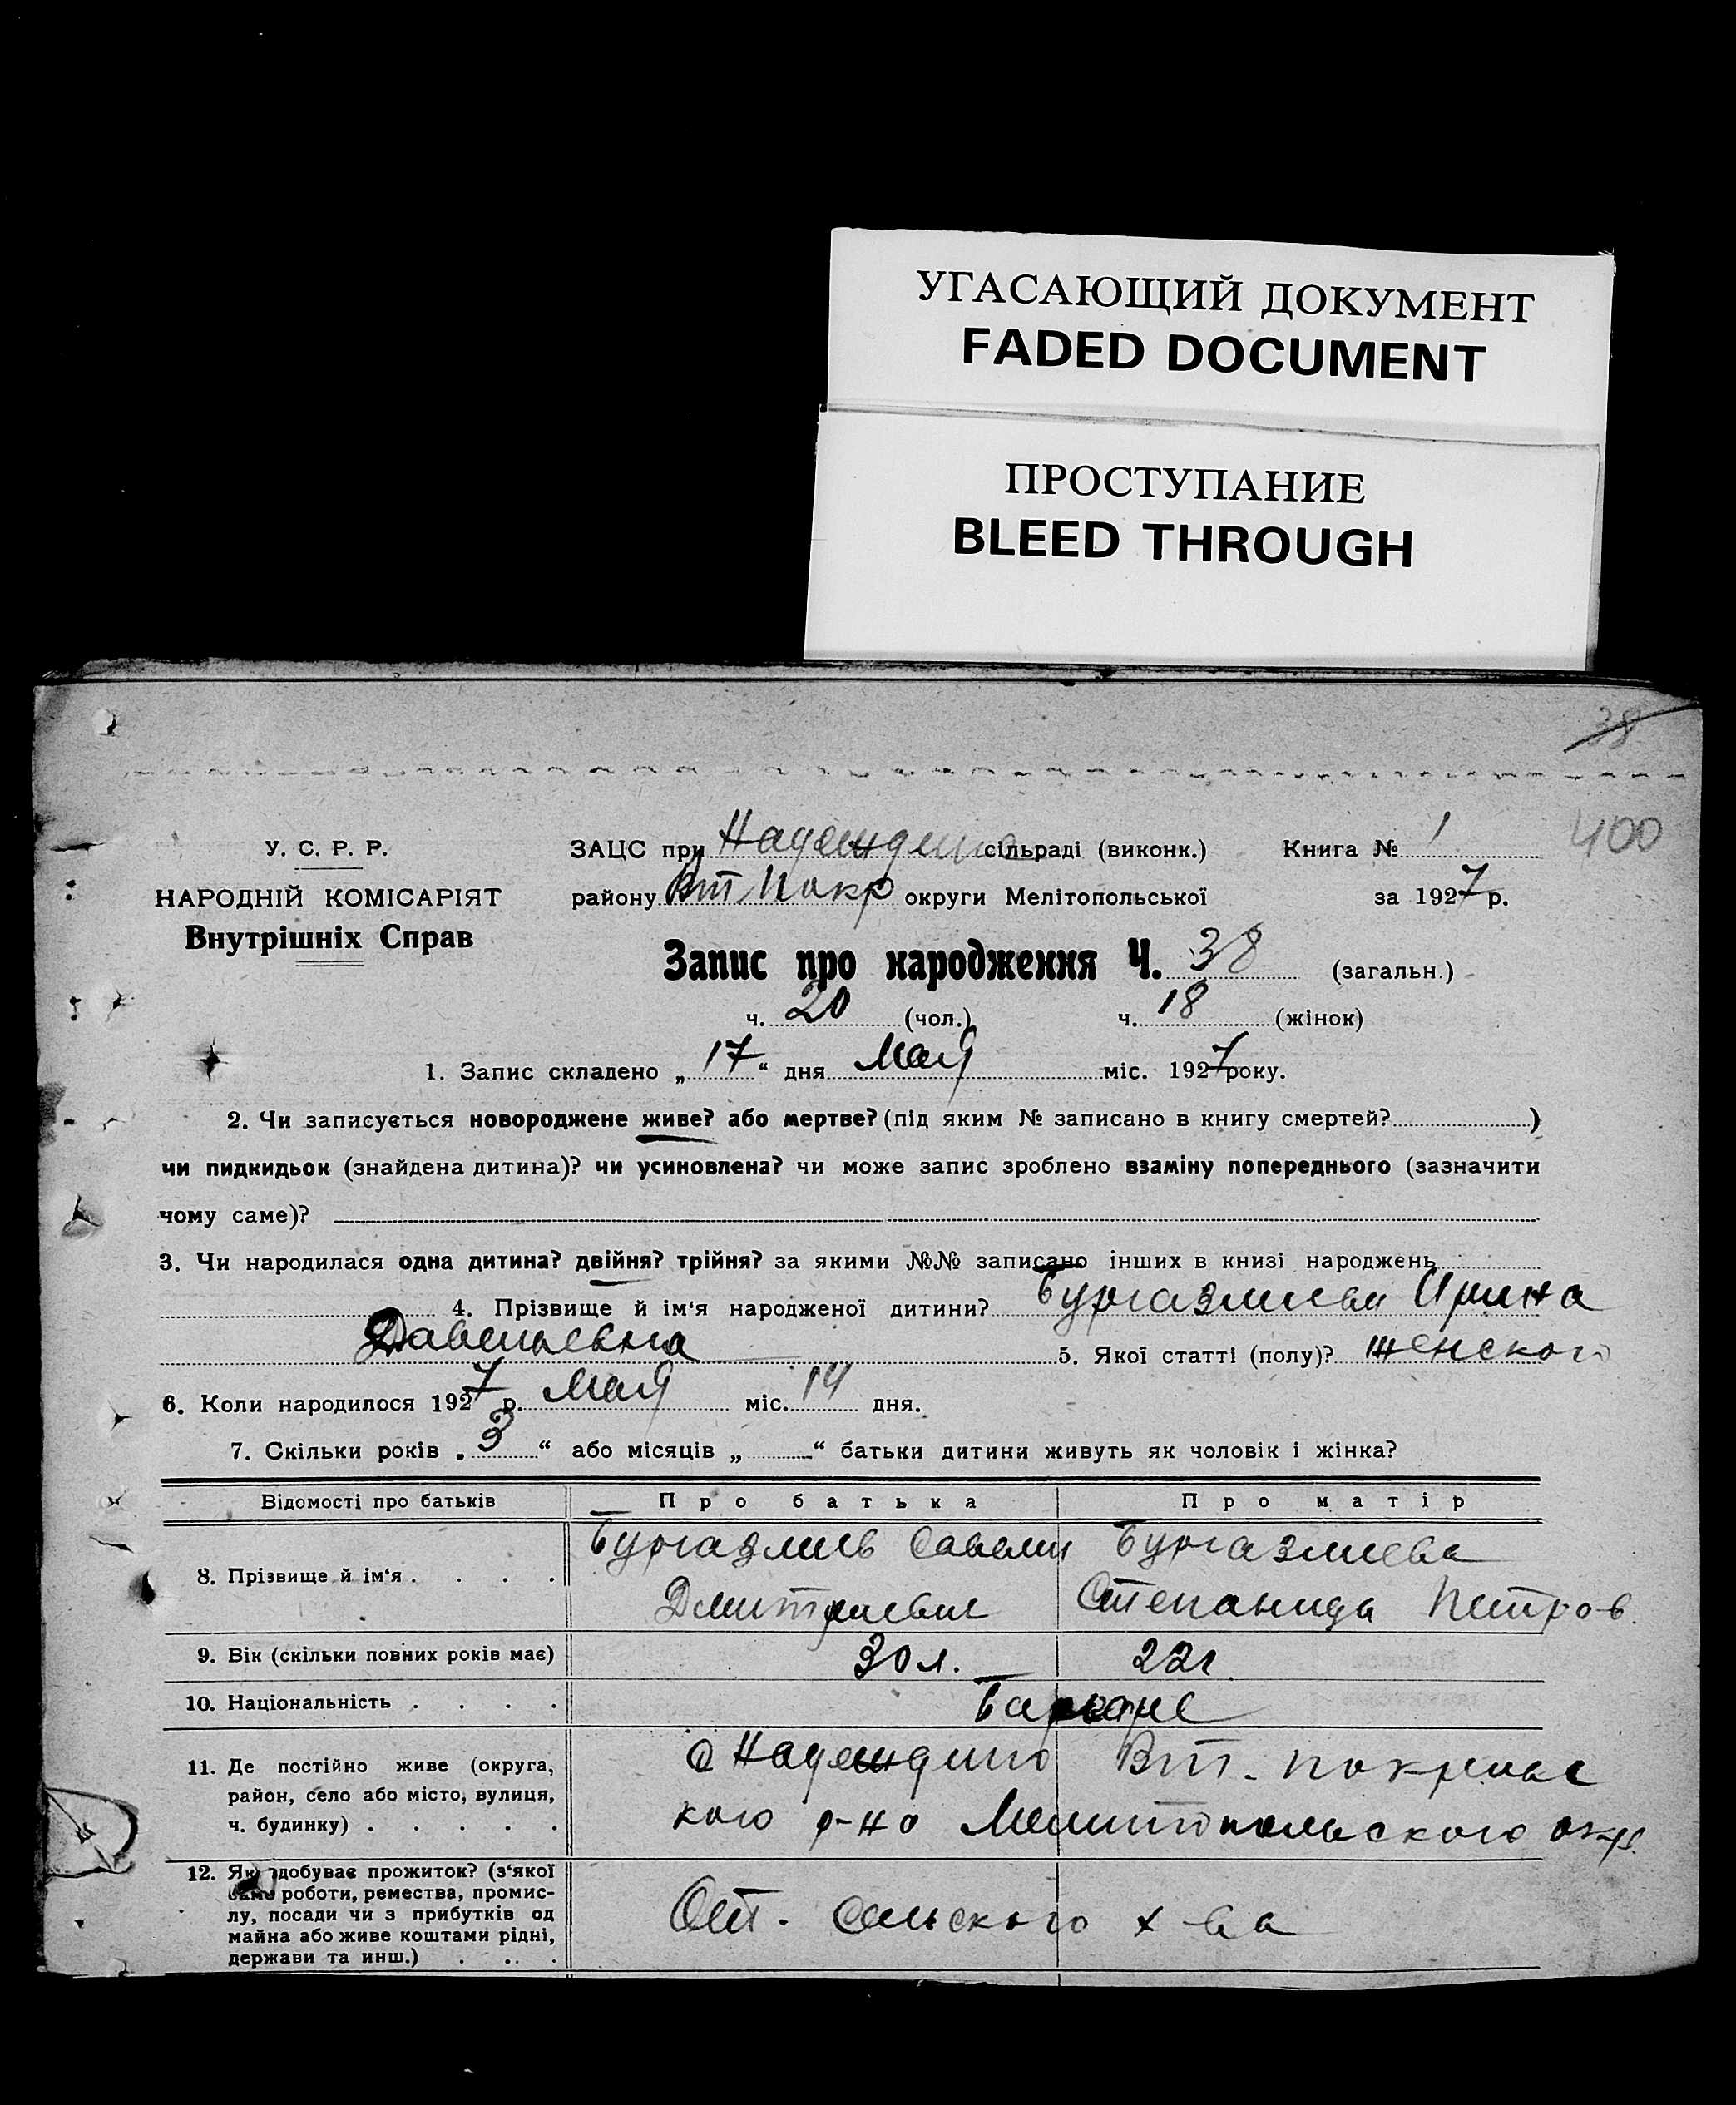 УГАСАЮЩИЙ ДОКУМЕНТ
FADED DOCUMENT
ПРОСТУПАНИЕ
BLEED THROUGH
38
400
У. С. Р. Р.
НАРОДНІЙ КОМІСАРІЯТ
Внутрішніх Справ
ЗАЦС при Надеждино сільраді (виконк.) Книга № 1
району Вт Покр округи Мелітопольської за 1927 р.
Запис про народження Ч. 38 (загальн.)
ч. 20 (чол.) ч. 18 (жінок)
1. Запис складено „17“ дня Мая міс. 1927 року.
2. Чи записується новороджене живе? або мертве? (під яким № записано в книгу смертей? )
чи пидкидьок (знайдена дитина)? чи усиновлена? чи може запис зроблено взаміну попереднього (зазначити
чому саме)?
3. Чи народилася одна дитина? двійня? трійня? за якими №№ записано інших в книзі народжень
4. Прізвище й ім'я народженої дитини? Бургазлиева Ирина
5. Якої статті (полу)? женского
6. Коли народилося 1927 р. Мая міс. 14 дня.
7. Скільки років „3“ або місяців „ “ батьки дитини живуть як чоловік і жінка?
Відомості про батьків Про батька Про матір
8. Прізвище й ім'я . . . . Бургазлиев Савелий Бургазлиева
Дмитриевич Степанида Петров.
9. Вік (скільки повних років має) 30 л. 22 г.
10. Національність . . . . Болгаре
11. Де постійно живе (округа, район, село або місто, вулиця, ч. будинку) . . . . .
с Надеждино Вт. покровс
кого р-на Мелитопольского окр.
12. Як здобуває прожиток? (з'якої
само роботи, ремества, промис-
лу, посади чи з прибутків од
майна або живе коштами рідні,
держави та инш.) . . . .
От. сельского х-ва